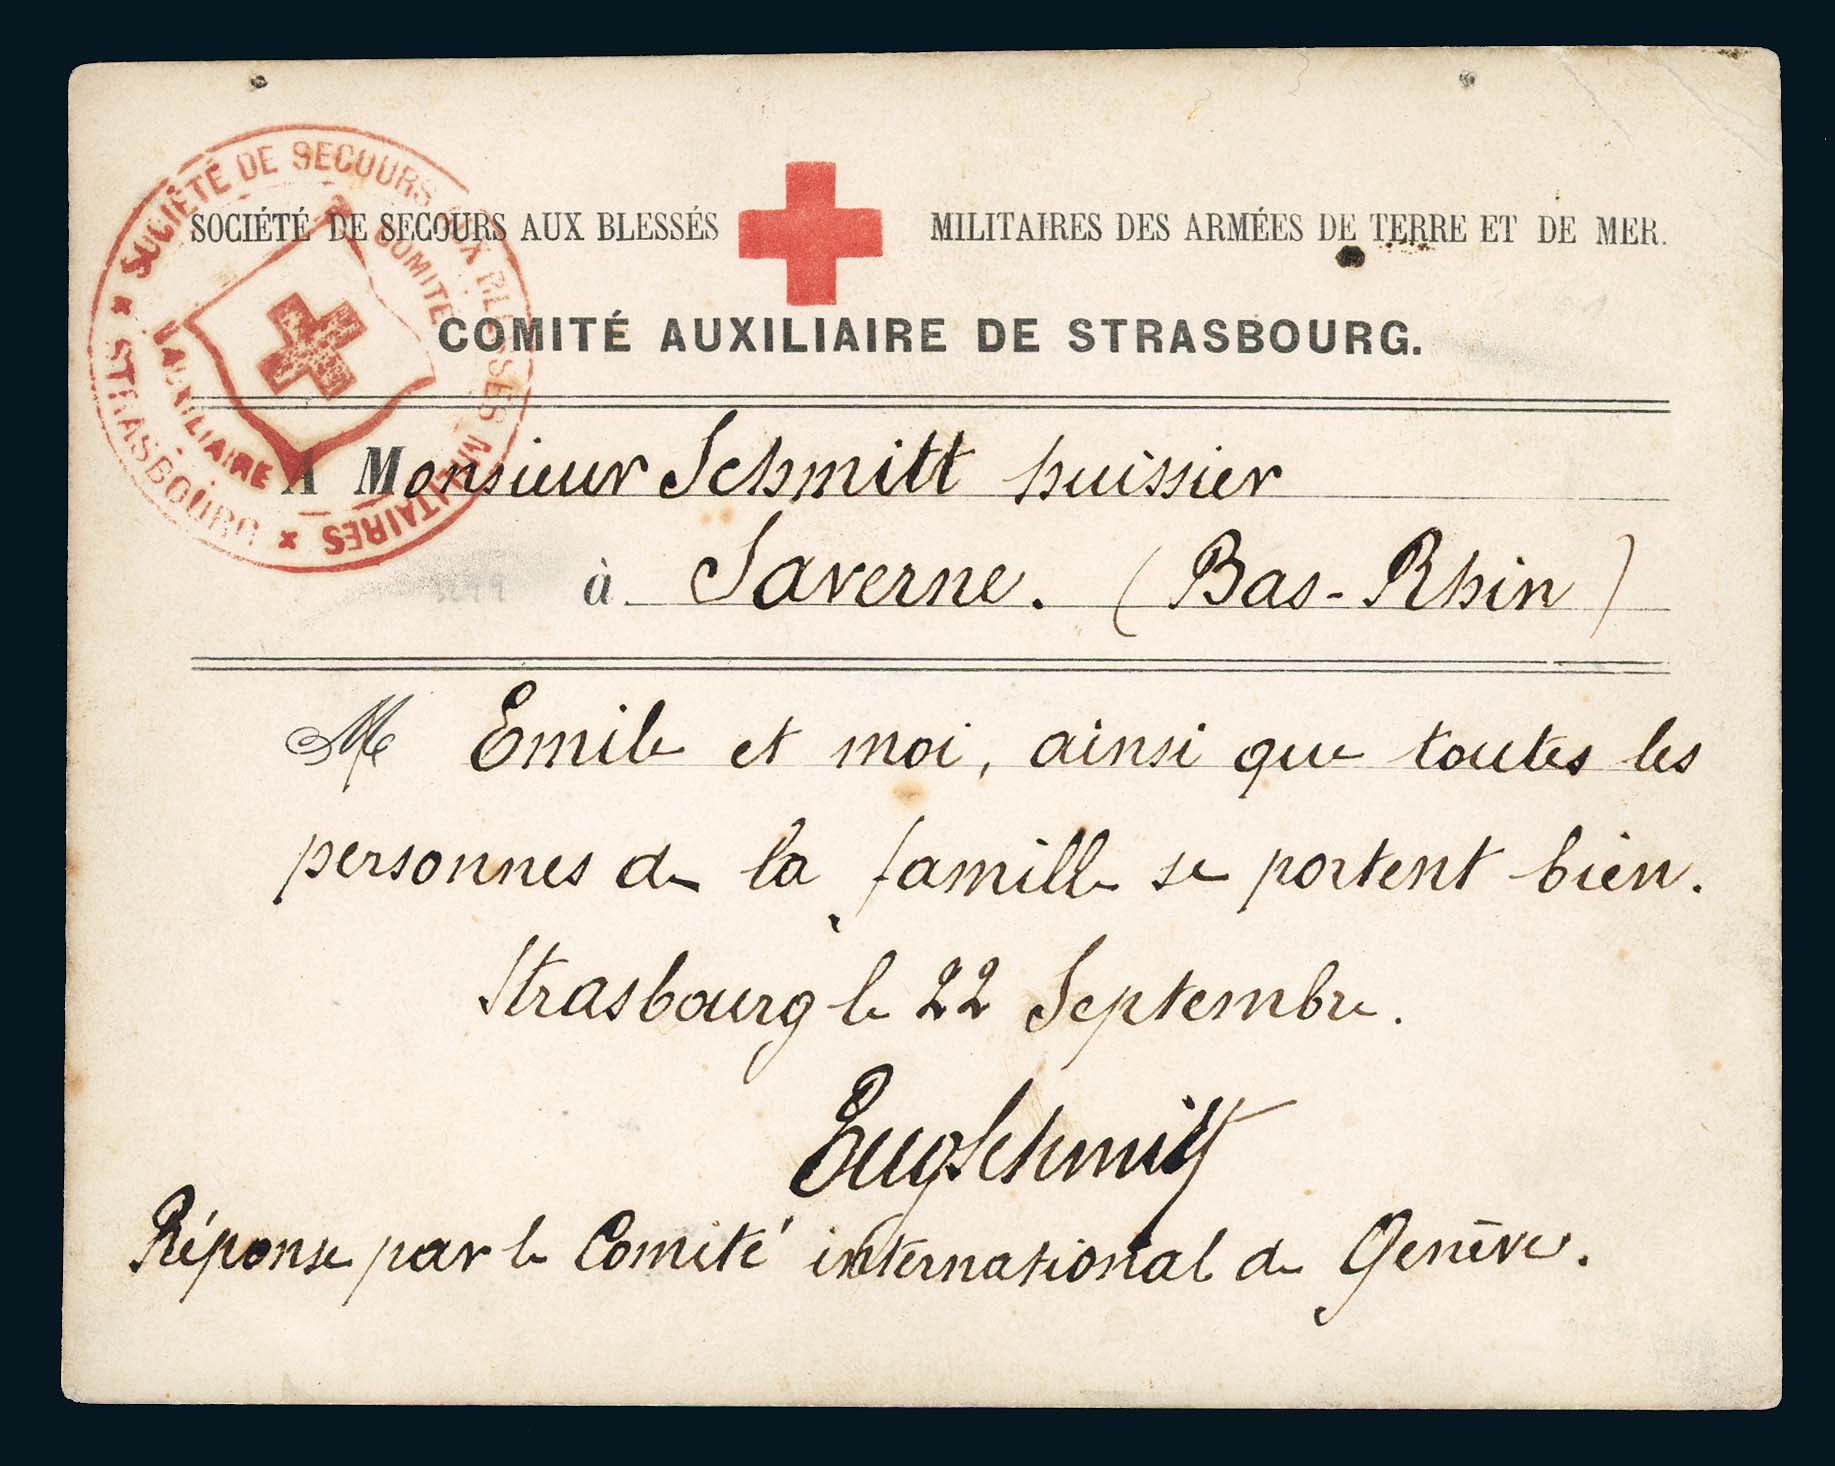 SOCIÉTÉ DE SECOURS AUX BLESSÉS MILITAIRES
COMITÉ AUXILIAIRE
STRASBOURG
SOCIÉTÉ DE SECOURS AUX BLESSÉS MILITAIRES DES ARMÉES DE TERRE ET DE MER.
COMITÉ AUXILIAIRE DE STRASBOURG.
A Monsieur Schmitt huissier
à Saverne. (Bas-Rhin)
M Emile et moi, ainsi que toutes les
personnes de la famille se portent bien.
Strasbourg le 22 Septembre.
Eug Schmitt
Réponse par le Comité international de Genève.